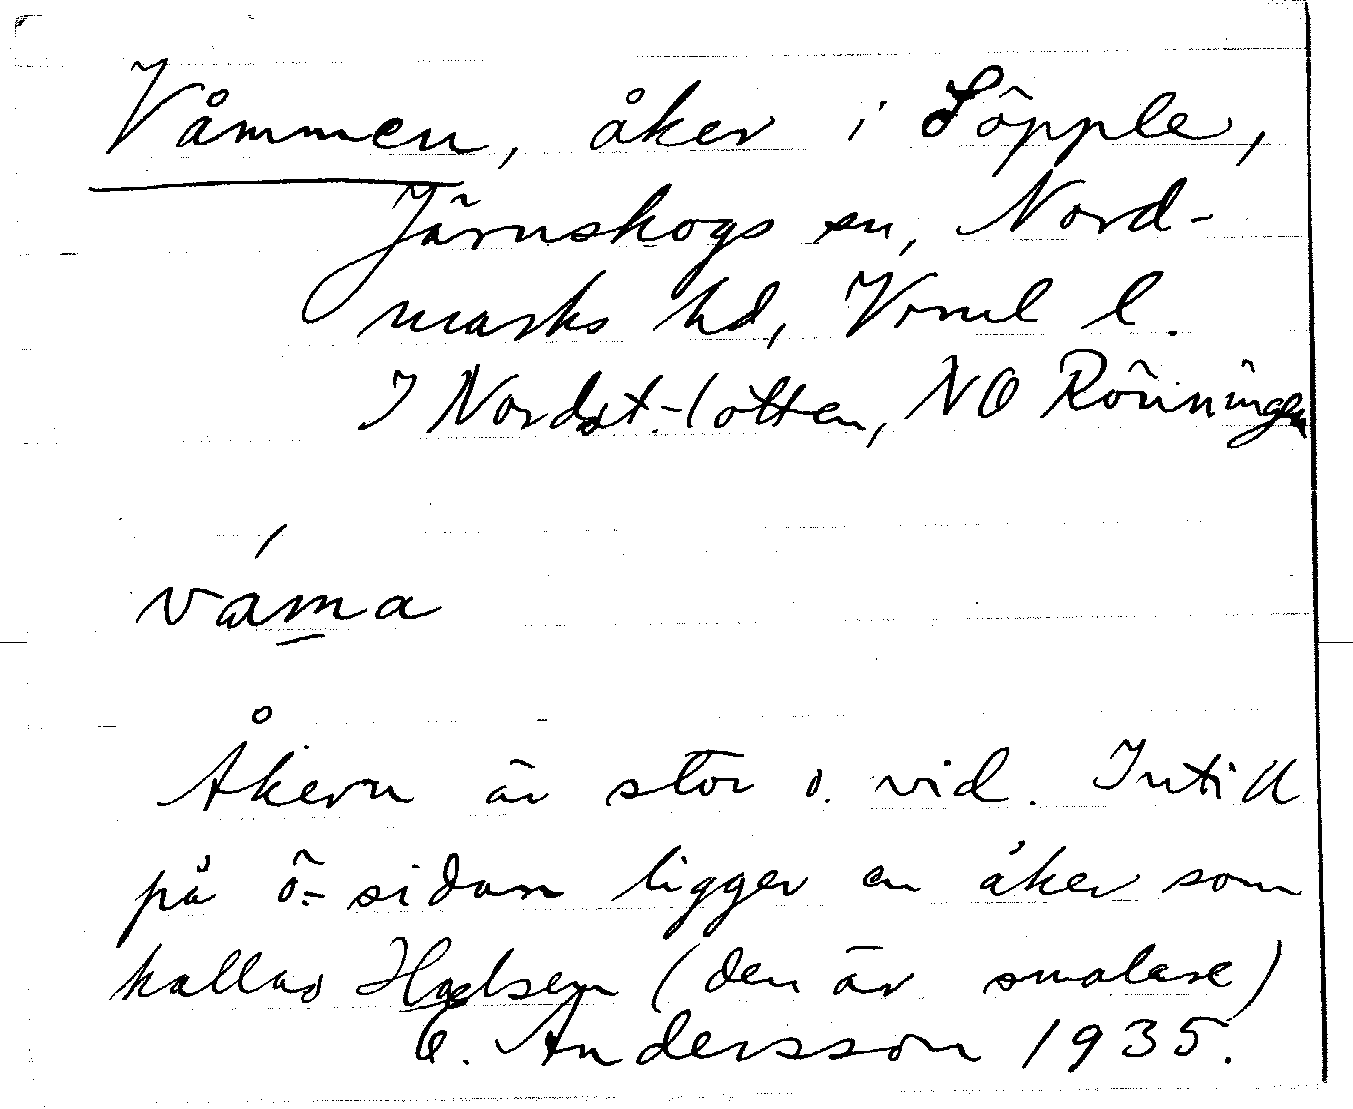 Våmmen, åker i Söpple,
Järnskogs sn, Nord-
marks hd, Vrml l.
I Nordst.-lotten, NO Rönningen
våma
Åkern är stor o. vid. Intill
på ö-sidan ligger en åker som
kallas Halsen (den är smalare)
E. Andersson 1935.